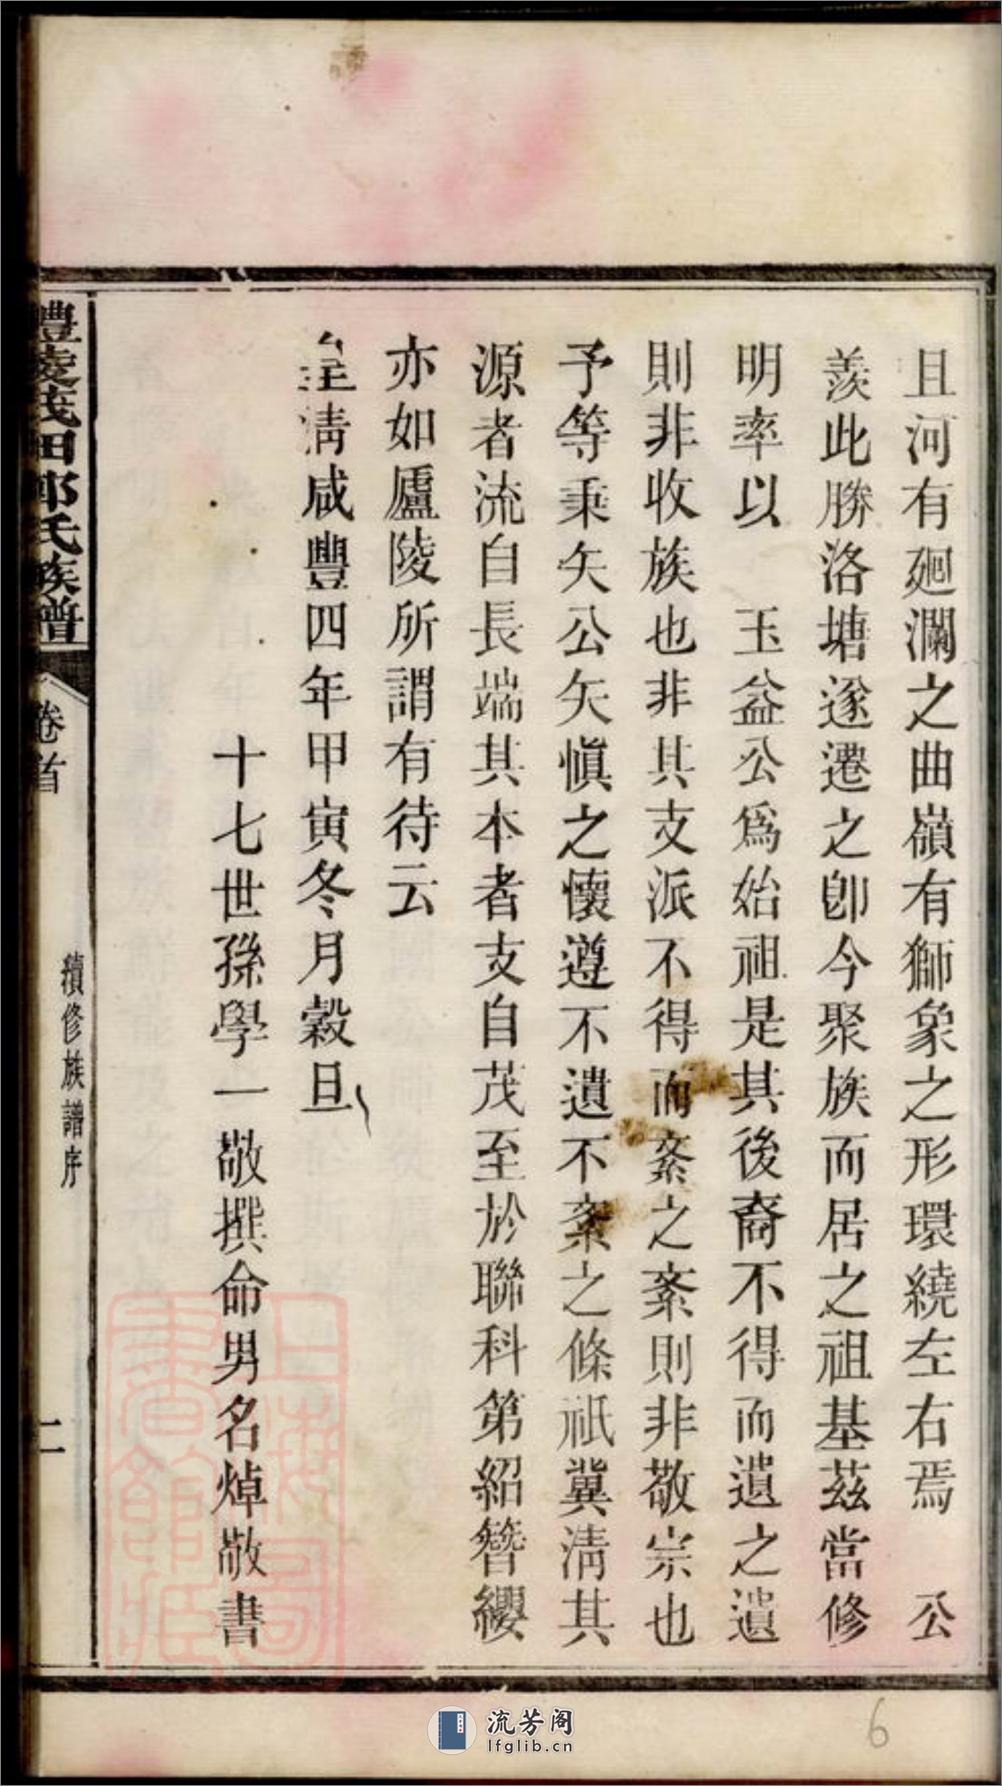 且河有廻瀾之曲嶺有獅象之形環繞左右焉　公
羨此勝洛塘遂遷之卽今聚族而居之祖基茲當修
明率以　玉益公爲始祖是其後裔不得而遺之遺
則非收族也非其支派不得而紊之紊則非敬宗也
予等秉矢公矢愼之懷遵不遺不紊之條祇冀淸其
源者流自長端其本者支自茂至於聯科第紹簪纓
亦如廬陵所謂有待云
皇淸咸豐四年甲寅冬月穀旦
十七世孫學一敬撰命男名焯敬書
醴陵茂田郭氏族譜
卷首
續修族譜序
二
上海圖書館藏
6
流芳阁
lfglib.cn